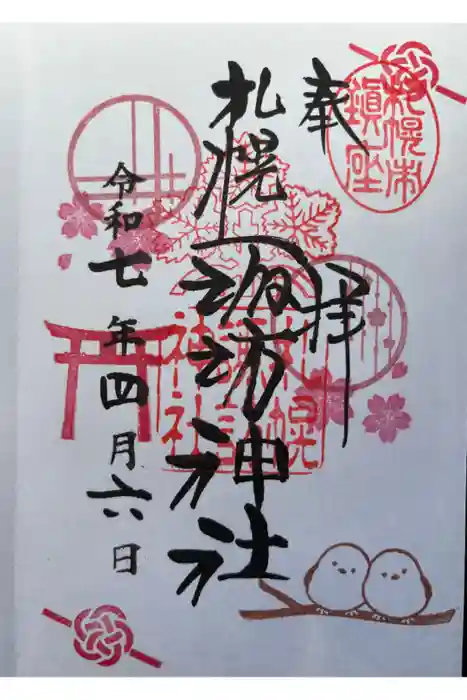 奉拝
札幌市鎮座
札幌諏訪神社
札幌諏訪神社
令和七年四月六日